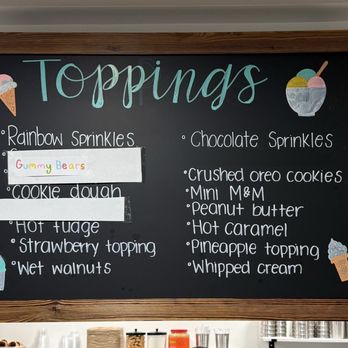 Toppings
°Rainbow Sprinkles
Gummy Bears
°Cookie dough
°Hot fudge
°Strawberry topping
°Wet walnuts
°Chocolate Sprinkles
°Crushed oreo cookies
°Mini M&M
°Peanut butter
°Hot caramel
°Pineapple topping
°Whipped cream